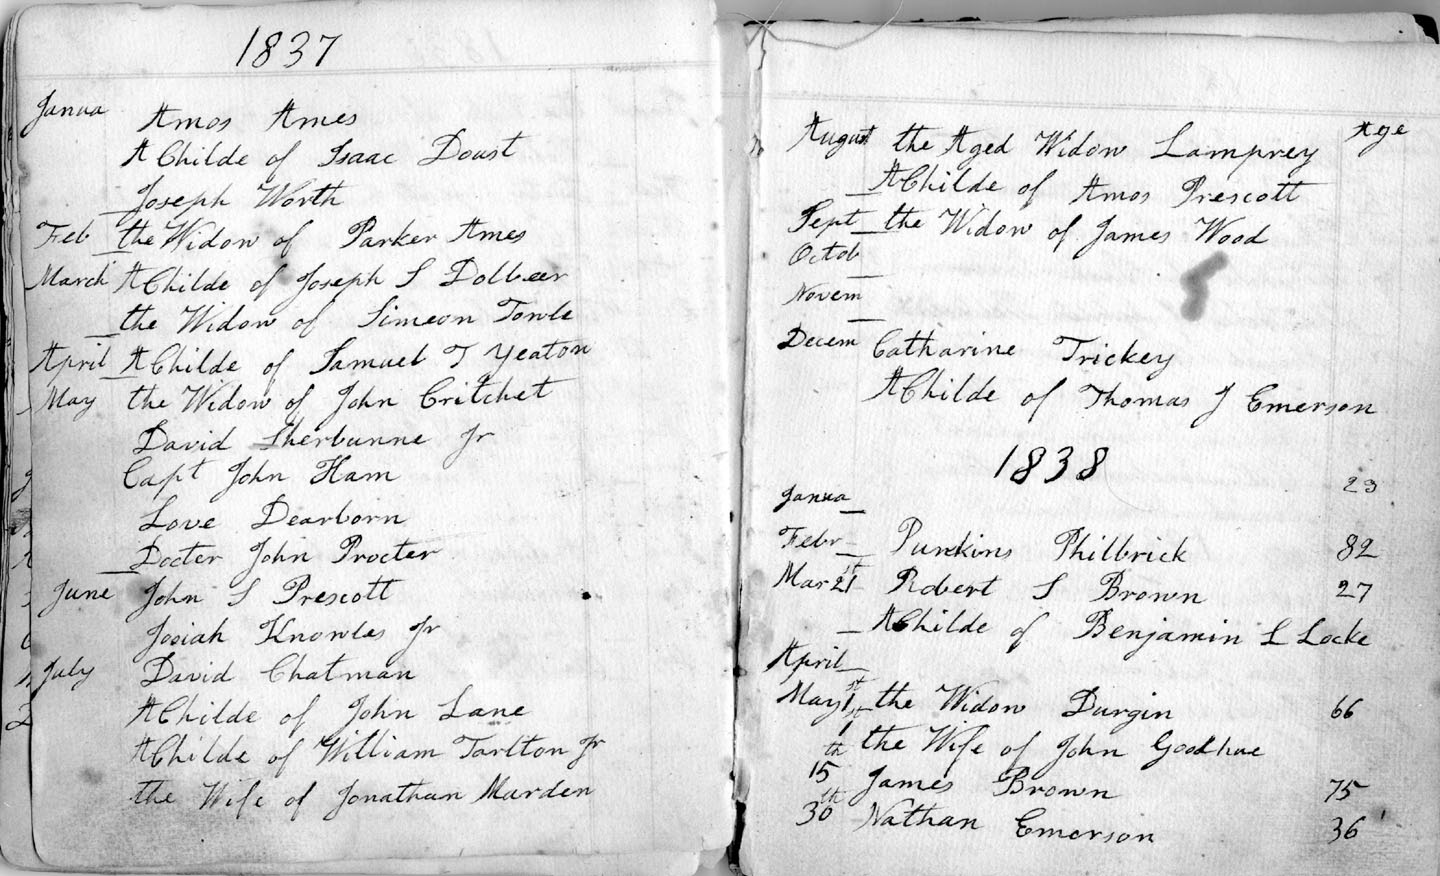 1837
Janua Amos Ames
A Childe of Isaac Doust
Joseph Worth
Feb the Widow of Parker Ames
March A Childe of Joseph S Dolbeer
the Widow of Simeon Towle
April A Childe of Samuel T Yeaton
May the Widow of John Critchet
David Sherbunne Jr
Capt John Ham
Love Dearborn
Docter John Procter
June John S Prescott
Josiah Knowles Jr
July David Chatman
A Childe of John Lane
A Childe of William Tarlton Jr
the Wife of Jonathan Marden
Age
August the Aged Widow Lamprey
A Childe of Amos Prescott
Sept the Widow of James Wood
Octob
Novem
Decem Catharine Trickey
A Childe of Thomas J Emerson
1838
Janua 23
Febr Purkins Philbrick 82
Mar 21st Robert S Brown 27
A Childe of Benjamin L Locke
April
May 1st the Widow Durgin 66
the Wife of John Goodhue
15th James Brown 75
30th Nathan Emerson 36